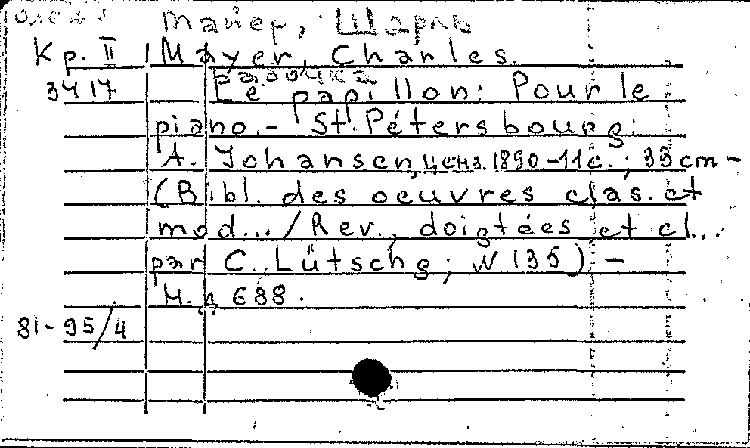 Майер, Шарль
Кр. II Mayer, Charles.
3417 Le papillon: Pour le
piano.- St. Pétersbourg:
A. Johansen, ценз. 1890-11c.; 33cm-
(Bibl. des oeuvres clas. et
mod... / Rev., doigtées et cl...
par C. Lütschg; N 135) -
Н. д. 688.
81-95/4